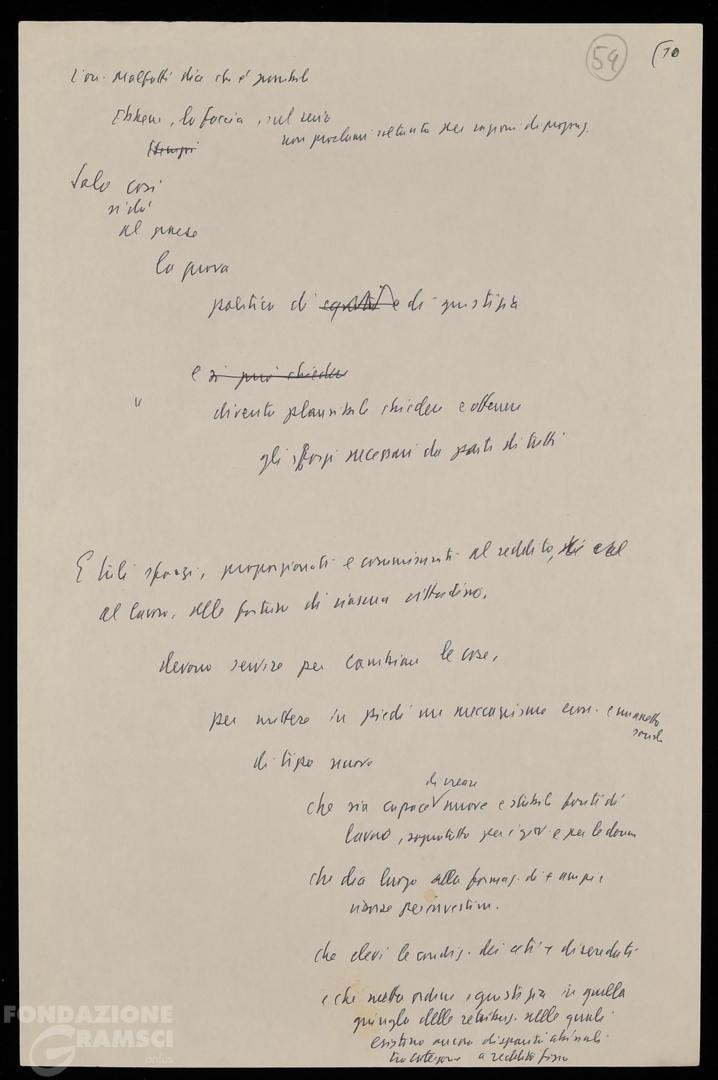 59
10
L'on. Malfatti dice che è possibile
Ebbene, lo faccia, sul serio
non proclami soltanto per ragioni di propag.
Solo così
si dà
al paese
la prova
politica di equità e di giustizia
e si può chiedere
diventa plausibile chiedere e ottenere
gli sforzi necessari da parte di tutti
E tali sforzi, proporzionati e commisurati al reddito,
al lavoro, alle fortune di ciascun cittadino,
devono servire per cambiare le cose,
per mettere in piedi un meccanismo econ. e un assetto
sociale
di tipo nuovo
di creare
che sia capace nuove e stabili fonti di
lavoro, soprattutto per i giov. e per le donne
che dia luogo alla formaz. di + ampie
risorse per investim.
che elevi le condiz. dei ceti + diseredati
e che metta ordine e giustizia in quella
giungla delle retribuz. nelle quali
esistono ancora disparità abissali
tra categorie a reddito fisso
FONDAZIONE
GRAMSCI
onlus